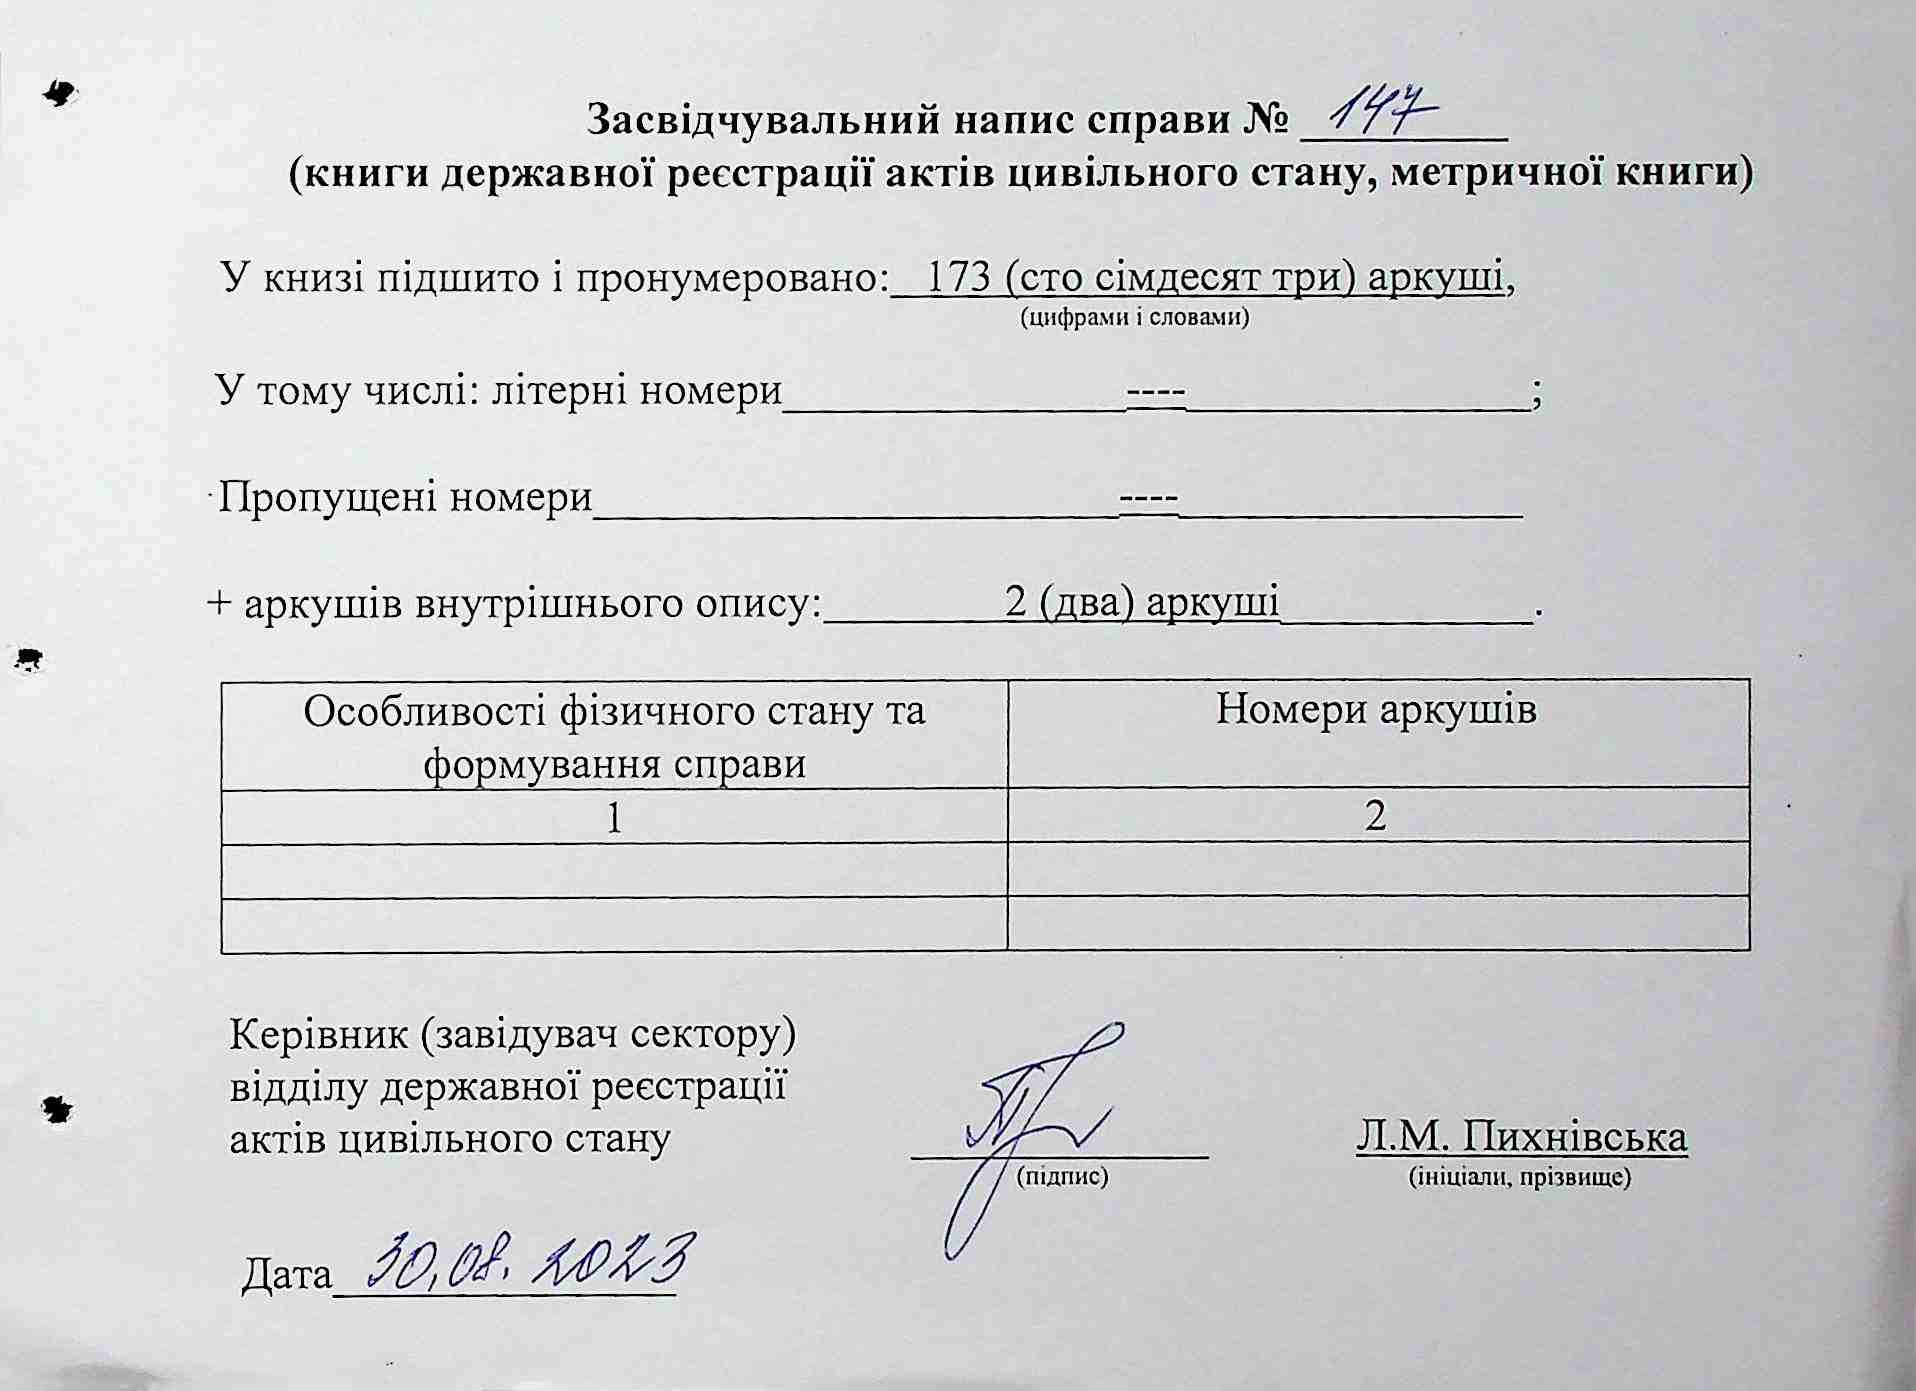 Засвідчувальний напис справи № 147
(книги державної реєстрації актів цивільного стану, метричної книги)
У книзі підшито і пронумеровано: 173 (сто сімдесят три) аркуші,
(цифрами і словами)
У тому числі: літерні номери ---- ;
Пропущені номери ----
+ аркушів внутрішнього опису: 2 (два) аркуші .
Особливості фізичного стану та Номери аркушів
формування справи
1 2
Керівник (завідувач сектору)
відділу державної реєстрації
актів цивільного стану Л.М. Пихнівська
(підпис) (ініціали, прізвище)
Дата 30.08.2023